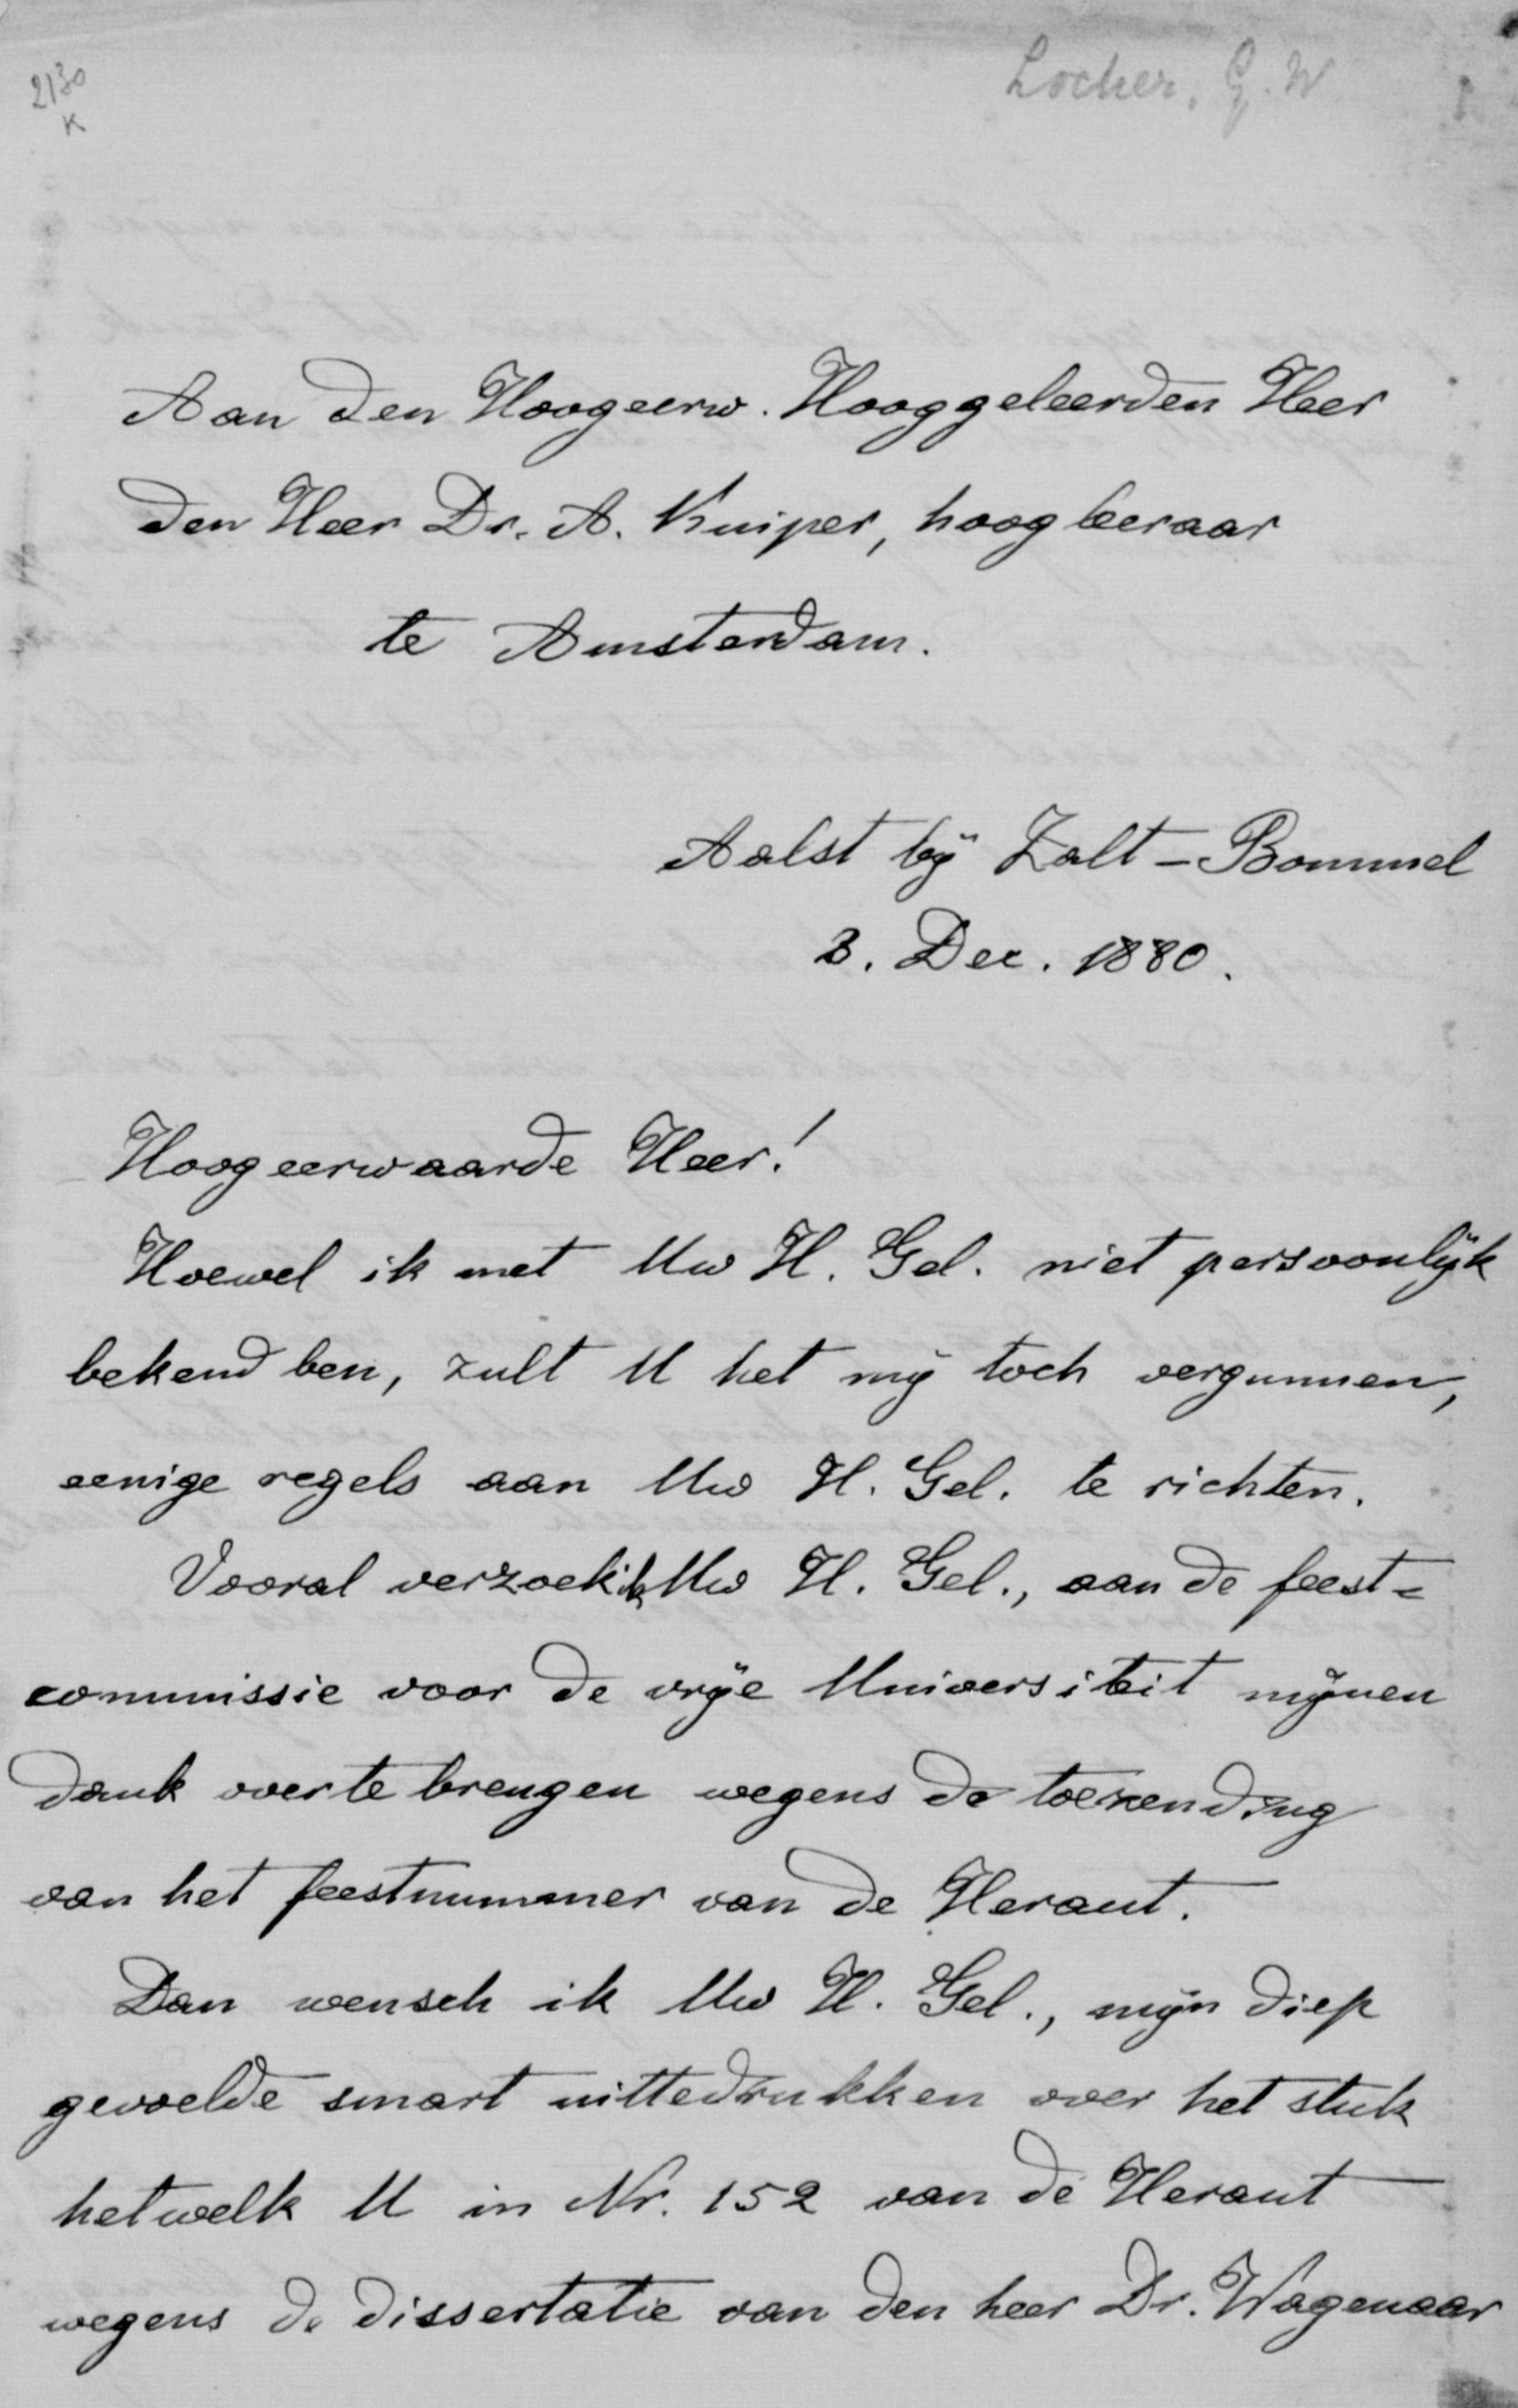 2130
K
Locher, G. W
Aan den Hoogeerw. Hooggeleerden Heer
den Heer Dr. A. Kuiper, hoogleeraar
te Amsterdam.
Aalst bij Zalt-Bommel
3. Dec. 1880.
Hoogeerwaarde Heer!
Hoewel ik met Uw H. Gel. niet persoonlijk
bekend ben, zult U het mij toch vergunnen,
eenige regels aan Uw H. Gel. te richten.
Vooral verzoek ik Uw H. Gel., aan de feest=
commissie voor de vrije Universiteit mijnen
dank overte brengen wegens de toezending
van het feestnummer van de Heraut.
Dan wensch ik Uw H. Gel., mijn diep
gevoelde smart uittedrukken over het stuk
hetwelk U in Nr. 152 van de Heraut
wegens de dissertatie van den heer Dr. Wagenaar